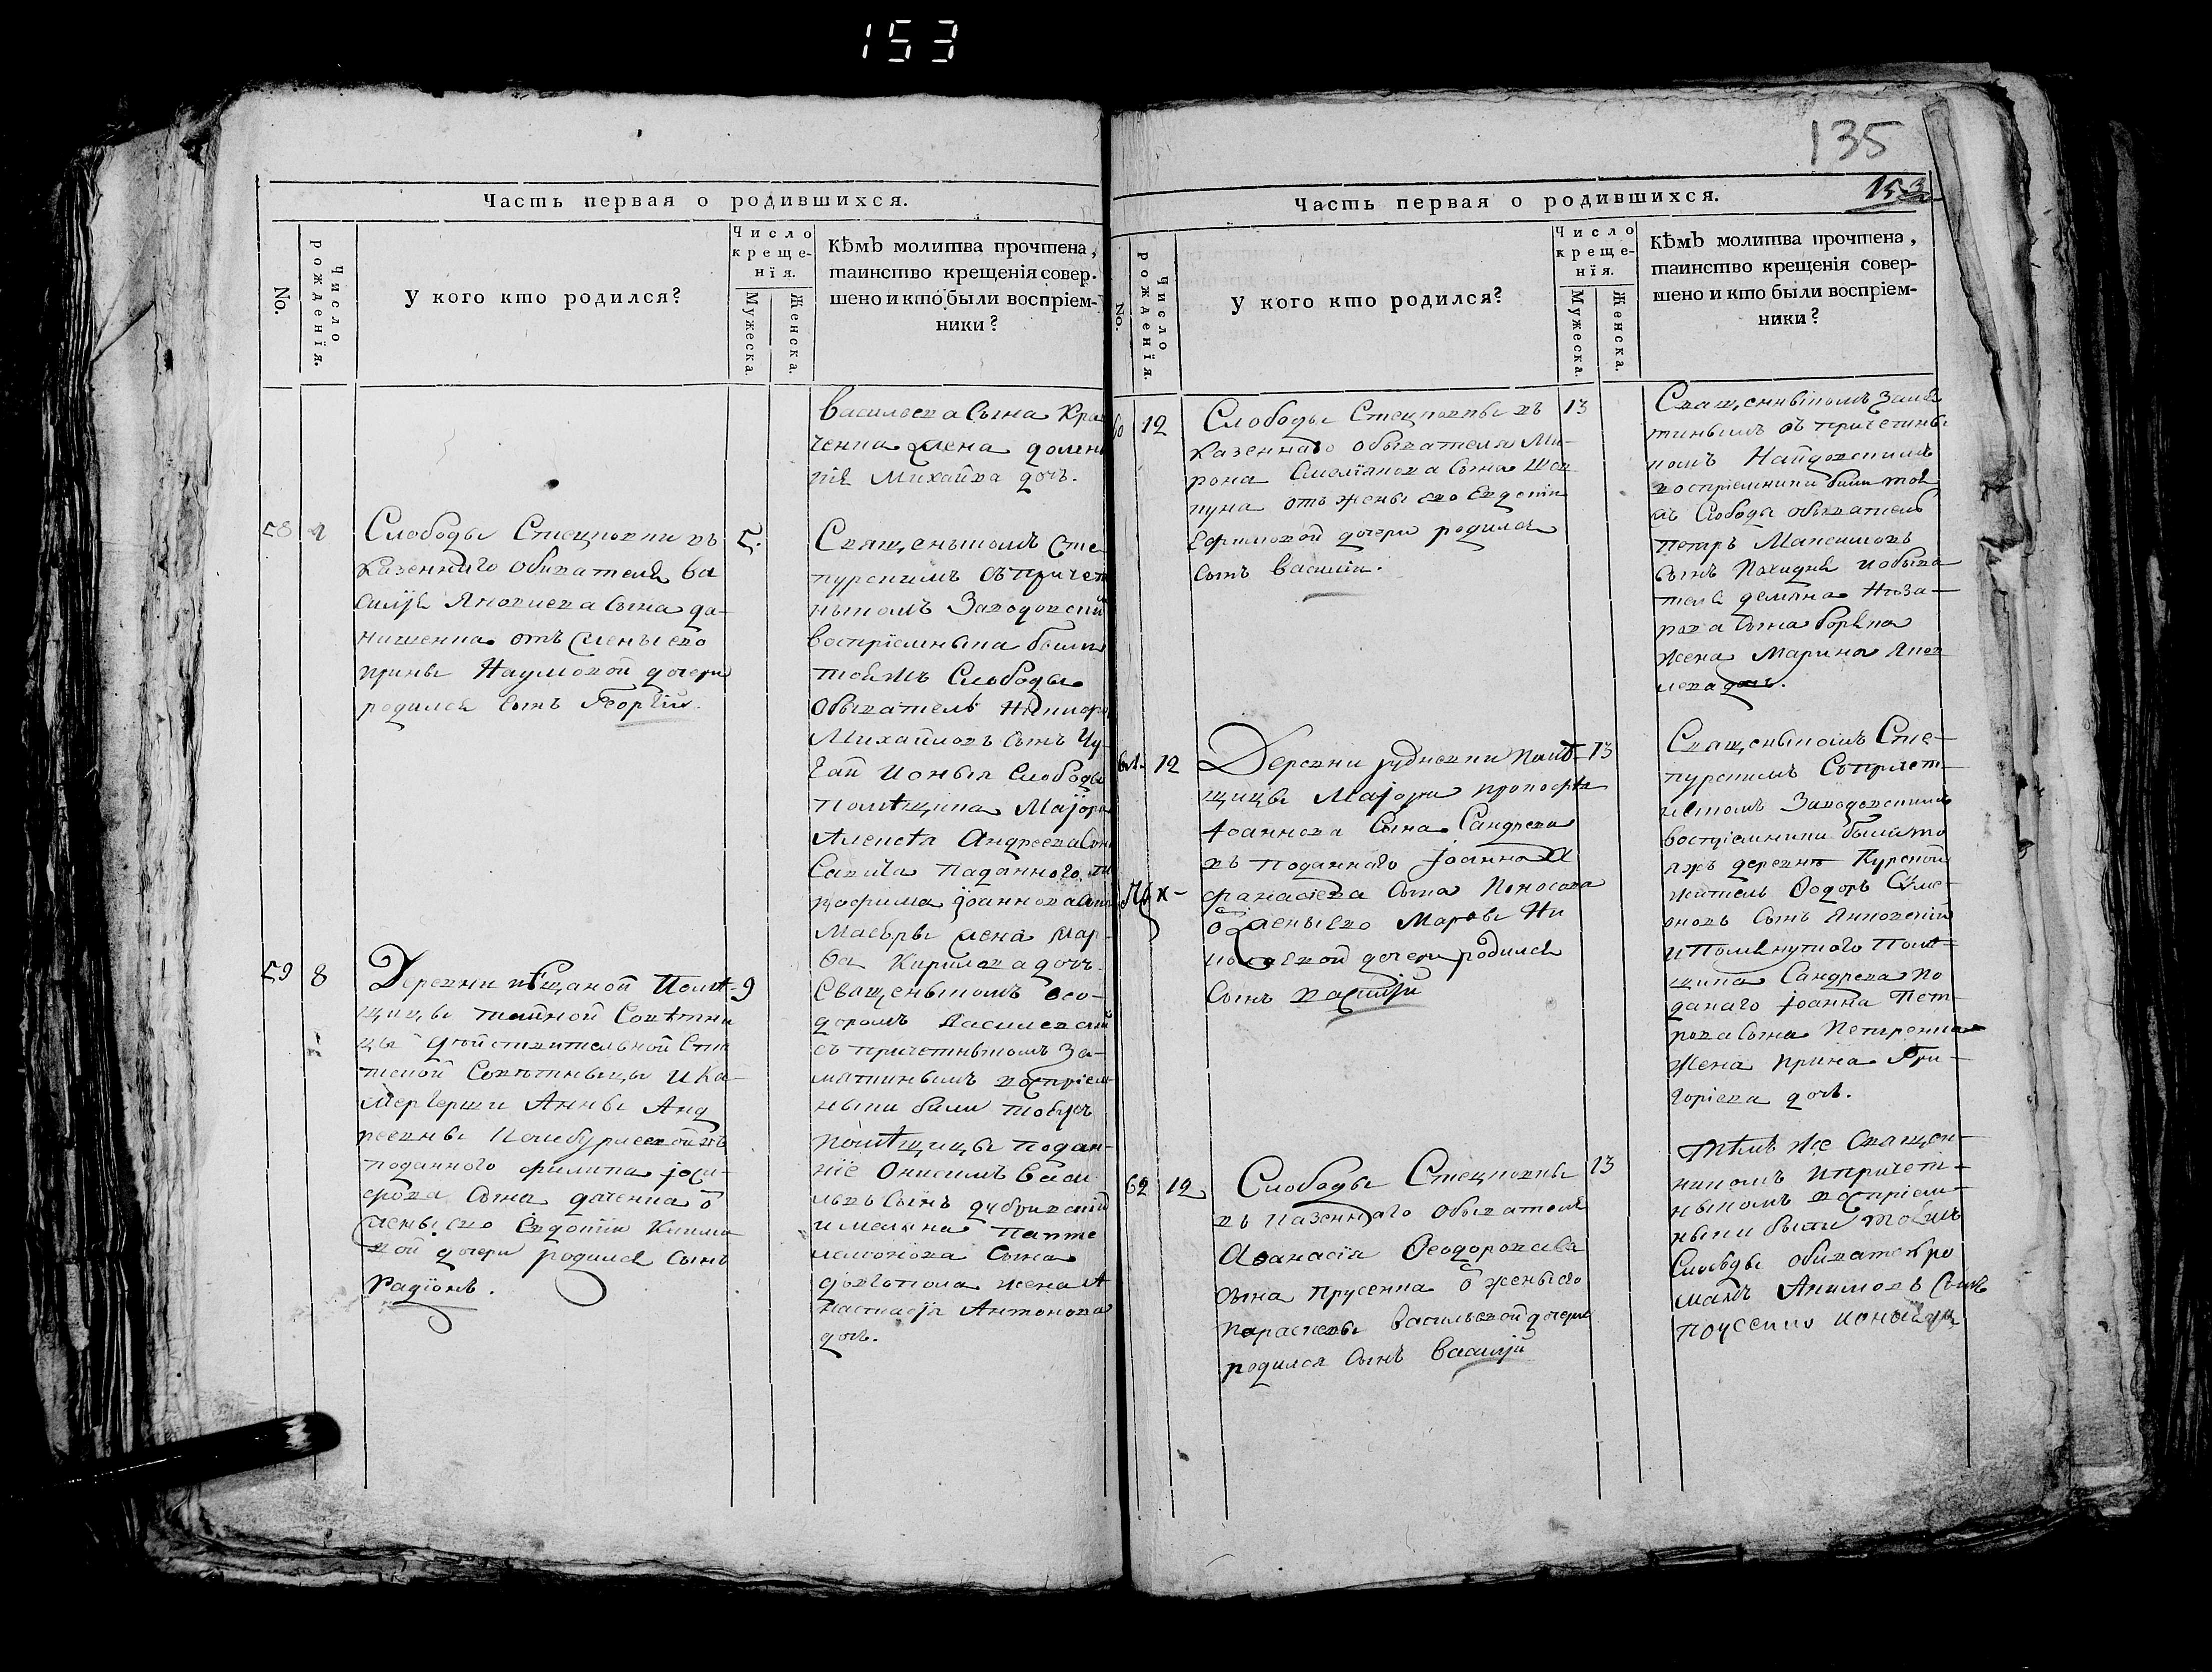 153
135
153
Часть первая о родившихся.
No.
Число рожденїя.
У кого кто родился?
Число
креще-
нїя.
Мужеска.
Женска.
Кѣмъ молитва прочтена,
таинство крещенія совер-
шено и кто были воспріем-
ники?
Васильева Сына
жена
Михайла дочь.
58
Слободы Стецковки въ
5.
казеннаго обывателя Ва
силія Яковлева Сына да-
нишенка отъ жены его
ирины Наумовой дочери
родился сынъ Георгій.
Священникомъ Сте
пурскимъ съ причет
никомъ Заводовский
воспріемника были
тояжъ Слободы
Обыватель Никифоръ
Михайловъ Сынъ Чу-
гай и оныя Слободы
помѣщика Маіора
Алексѣя Андреева Сына
Савича Паданного
Іоаннова
жена Мар-
фа Кирилова дочь.
59
8
Деревни пѣщаной Помѣ-
9
щицы тайной Совѣтни
цы дѣйствительной Ста
тской Совѣтницы и Ка-
мергерши Анны Анд
реевны
поданного филипа Іоси-
фова Сына даценка о
жены его Евдотіи Клима
вой дочери родился Сынъ
Радіонъ.
Священникомъ Ѳео-
доромъ Василевский
съ причетникомъ За-
мятинымъ воспріем-
ники были тоеужъ
Помѣщицы подан-
ніе Онисимъ Васи
льевъ Сынъ дубровский
и малана Панте
леймонова Сына
довгопола жена А
настасія Антонова
дочь.
Часть первая о родившихся.
No.
Число рожденїя.
У кого кто родился?
Число
креще-
нїя.
Мужеска.
Женска.
Кѣмъ молитва прочтена,
таинство крещенія совер-
шено и кто были воспріем-
ники?
60
12
Слободы Стецковки въ
13
Казеннаго обывателя Ми-
рона Емеліянова Сына Шов
куна отъ жены его Евгении
Ефимовой дочери родился
сынъ Василій.
Священникомъ Замя
тинымъ съ причетни
комъ Найдовскимъ
воспріемники были тоя
жъ Слободы обыватель
Петръ Максимовъ
Сынъ Похидня и обыва
теля демяна Наза-
рова Сына борвка
жена Марина Яков
лева дочь.
61.
12
Деревни рудневки Помѣ-
13
щицы Маіора прокофія
Іоаннова Сына Сандрева
въ поданнаго Іоанна А
фанасіева Сына Коносова
о жены его Марфы Ни
колаевой дочери родился
Сынъ василій
Священникомъ Сте-
пурскимъ Съ причет-
никомъ Заводовскимъ
воспріемники были то
яжъ деревни Курской
житель Ѳедоръ Симе-
оновъ Сынъ Янковский
и Помянутого Помѣ-
щика Сандрева По
данаго Іоанна Пет-
рова Сына Петренка
Жена ирина Гри-
горіева дочь.
62
12
Слободы Стецковки
13
въ казеннаго обывателя
Аѳанасія Ѳеодорова
Сына прусенка о жены его
Параскевы Васильевой дочери
родился Сынъ Василій
Тѣмъ же Священ-
никомъ и причет-
никомъ воспріем-
ники были тоежъ
Слободы обыватель ро
манъ Акимовъ Сынъ